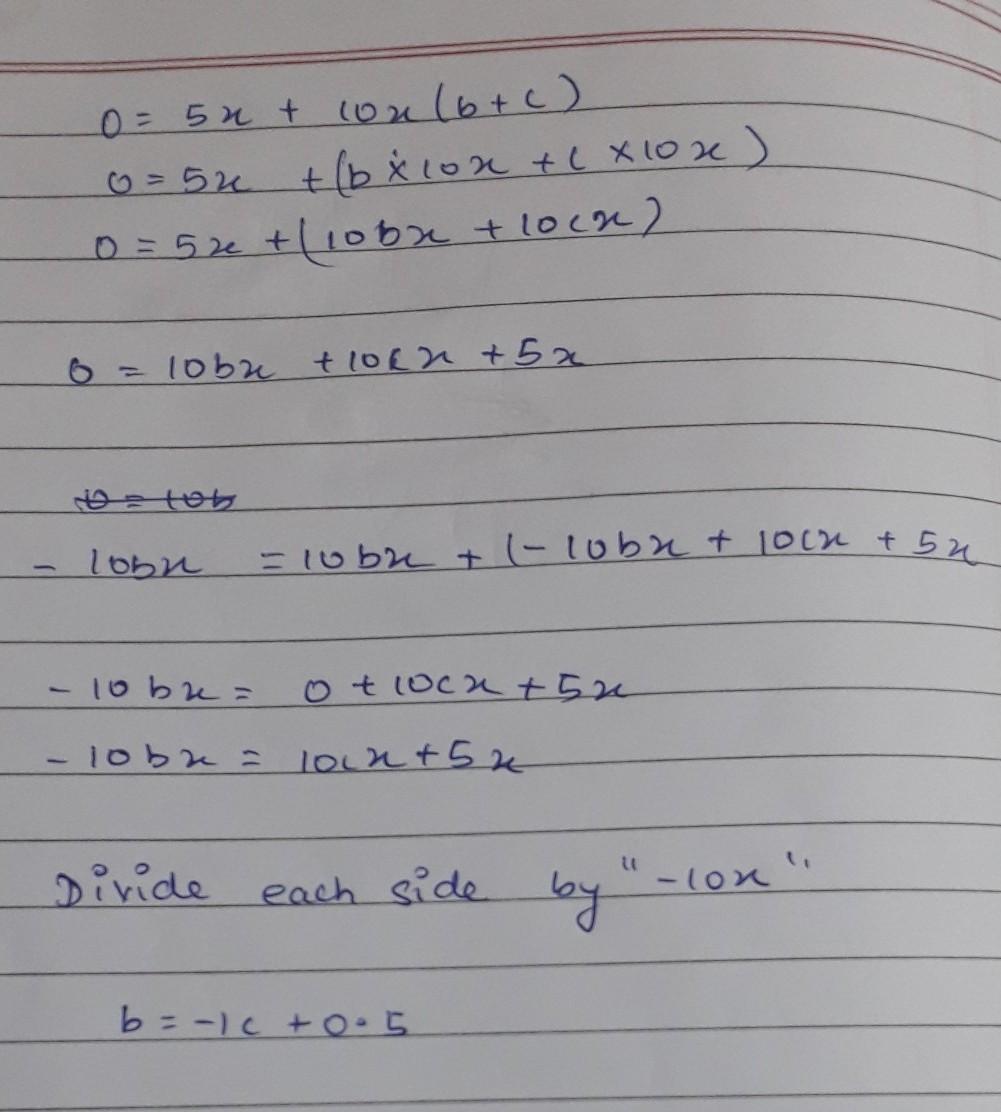 0 = 5x + 10x(b+c)
0 = 5x + (b × 10x + c × 10x)
0 = 5x + (10bx + 10cx)
0 = 10bx + 10cx + 5x
0 = 10b
- 10bx = 10bx + (- 10bx + 10cx + 5x
- 10bx = 0 + 10cx + 5x
- 10bx = 10cx + 5x
Divide each side by "-10x"
b = -1c + 0.5